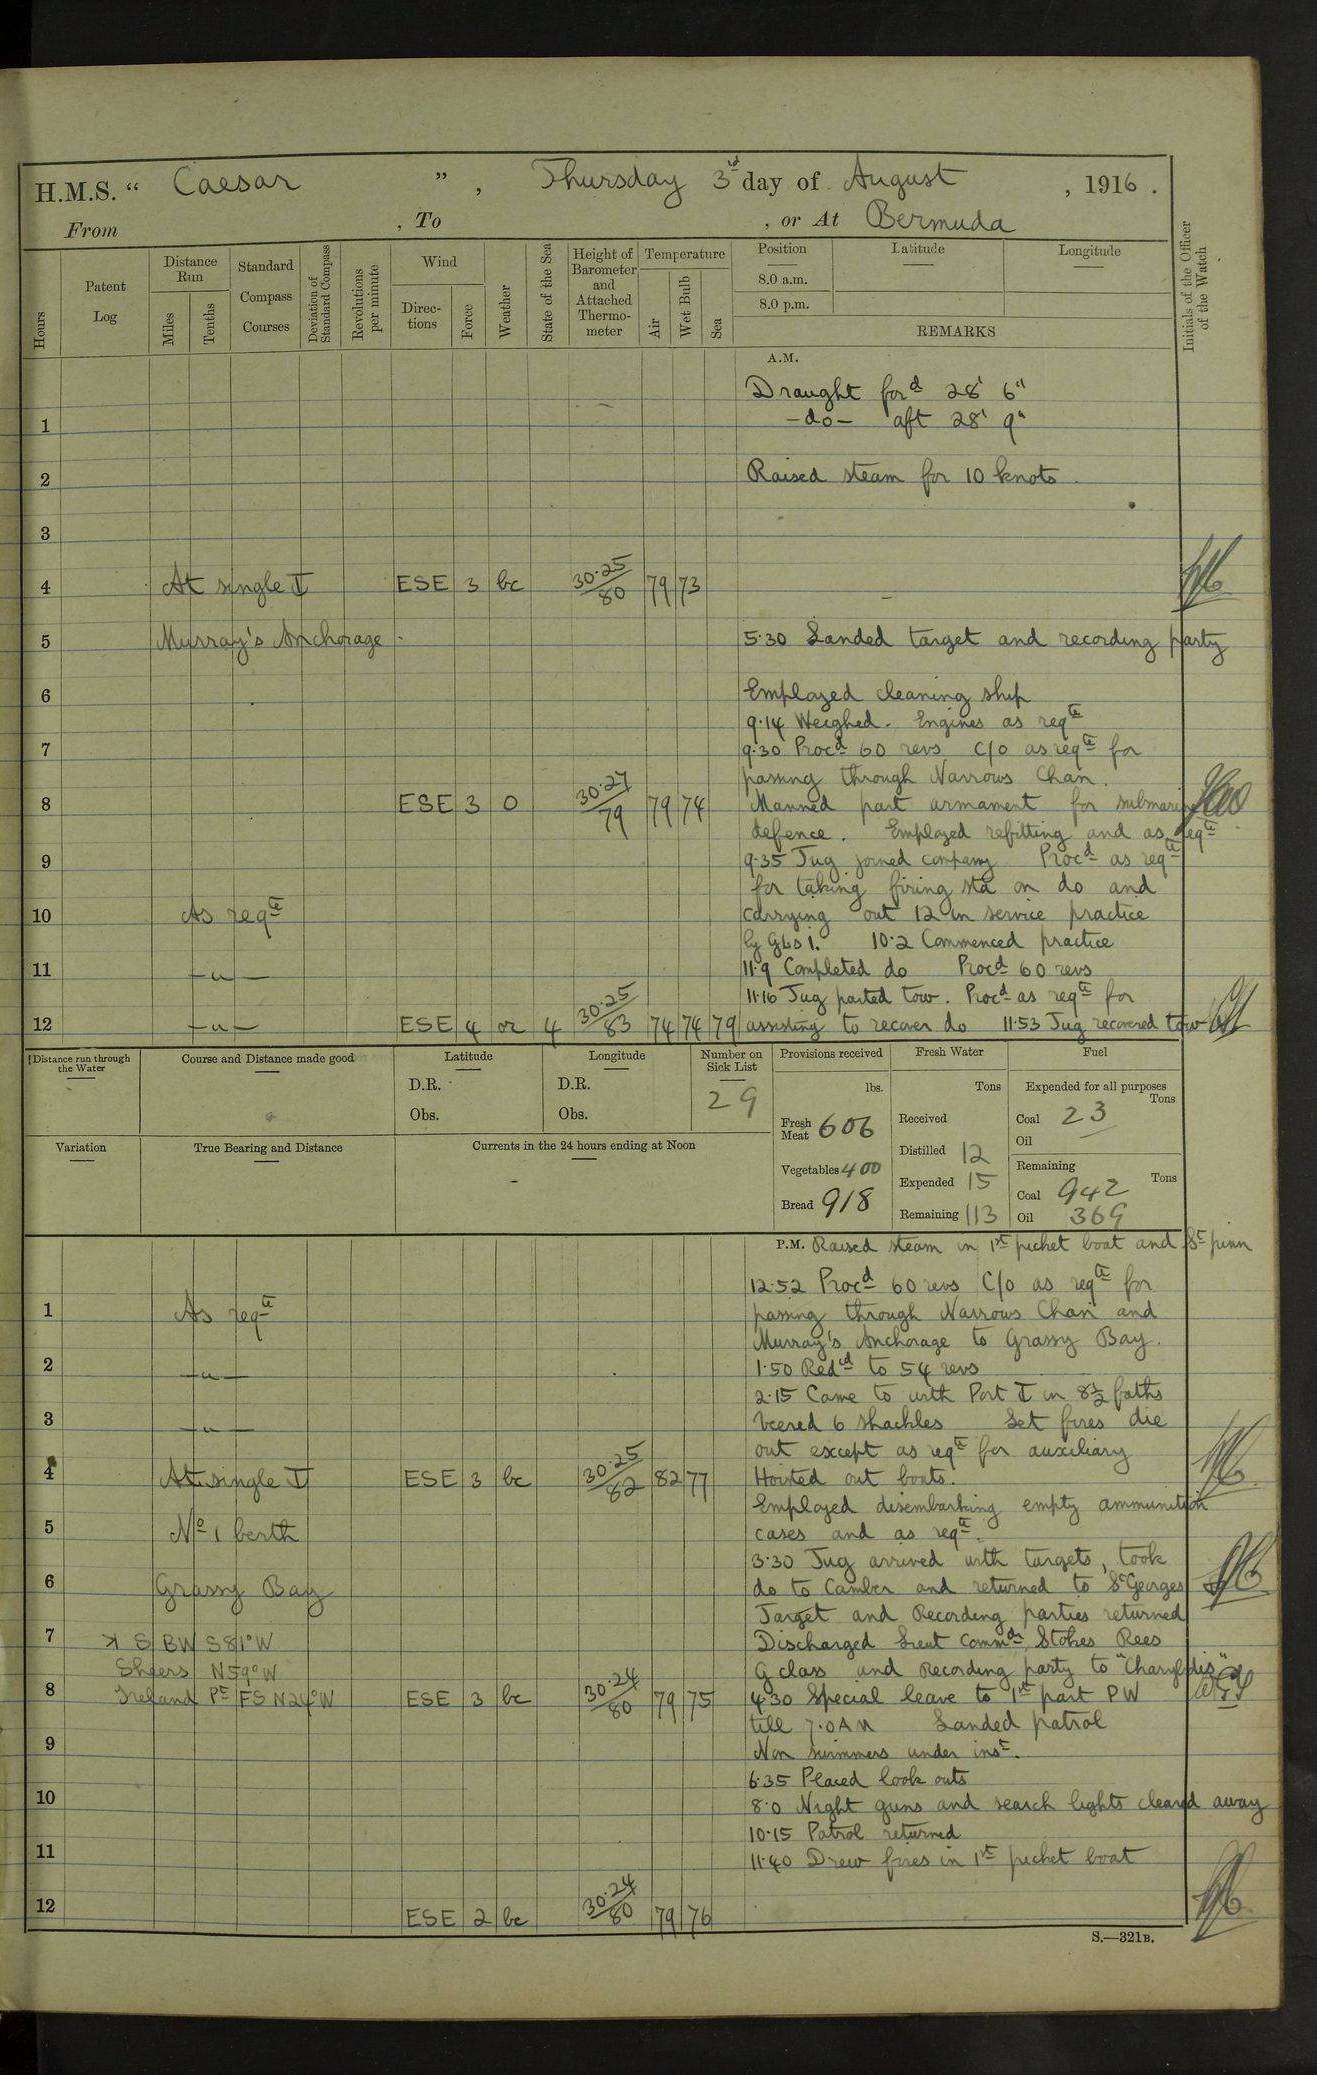 H.M.S. “ Caesar ” , Thursday 3rd day of August , 1916 .
From , To , or At Bermuda
Hours
Patent Log
Distance Run
Miles
Tenths
Standard Compass Courses
Deviation of Standard Compass
Revolutions per minute
Wind
Directions
Force
Weather
State of the Sea
Height of Barometer and Attached Thermometer
Temperature
Air
Wet Bulb
Sea
Position
Latitude
Longitude
8.0 a.m.
8.0 p.m.
REMARKS
Initials of the Officer of the Watch
A.M.
Draught ford 28' 6"
1 -do- aft 28' 9"
2 Raised steam for 10 knots
3
4 At single ESE 3 bc 30.25/80 79 73
5 Murray's Anchorage 5.30 Landed target and recording party
6 Employed cleaning ship
9.14 Weighed. Engines as reqte
7 9.30 Procd 60 revs C/o as reqte for
passing through Narrows Chan.
8 ESE 3 o 30.27/79 79 74 Manned part armament for submarine
defence. Employed refitting and as reqte
9 9.35 Tug joined company Procd as reqte
for taking firing sta on do and
10 As reqte carrying out 12 in service practice
by 10.2 Commenced practice
11 -u- 11.9 Completed do Procd 60 revs
11.16 Tug parted tow. Procd as reqte for
12 -u- ESE 4 or 4 30.25/83 74 74 79 assisting to recover do 11.53 Tug recovered tow
Distance run through the Water
Course and Distance made good
Latitude
D.R.
Obs.
Longitude
D.R.
Obs.
Number on Sick List
29
Provisions received
lbs.
Fresh Meat 606
Vegetables 400
Bread 918
Fresh Water
Tons
Received
Distilled 12
Expended 15
Remaining 113
Fuel
Expended for all purposes
Tons
Coal 23
Oil
Remaining
Tons
Coal 942
Oil 369
Variation
True Bearing and Distance
Currents in the 24 hours ending at Noon
P.M. Raised steam in 1st picket boat and St pinn
12.52 Procd 60 revs C/o as reqte for
1 As reqte passing through Narrows Chan and
Murray's Anchorage to Grassy Bay.
2 -u- 1.50 Redcd to 54 revs
2.15 Came to with Port in 8½ faths
3 -u- Veered 6 shackles Let fires die
out except as reqte for auxiliary
4 At single ESE 3 bc 30.25/82 82 77 Hoisted out boats.
Employed disembarking empty ammunition
5 No 1 berth cases and as reqte.
3.30 Tug arrived with targets, took
6 Grassy Bay do to Camber and returned to St Georges
Target and Recording parties returned
7 S BW S81°W Discharged Lieut Commdr Stokes Rees
Sheers N59°W G class and Recording party to "Charybdis"
8 Ireland Pt FS N24°W ESE 3 bc 30.24/80 79 75 4.30 Special leave to 1st part PW
till 7.0 AM Landed patrol
9 Non swimmers under inst.
6.35 Placed look outs
10 8.0 Night guns and search lights cleared away
10.15 Patrol returned
11 11.40 Drew fires in 1st picket boat
12 ESE 2 bc 30.24/80 79 76
S.—321B.